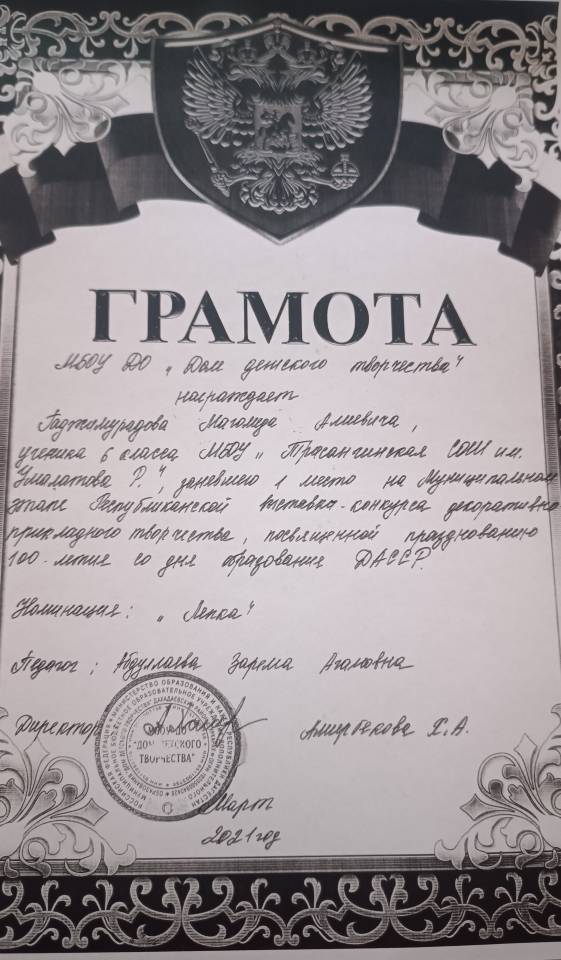 ГРАМОТА
МБОУ ДО „Дом детского творчества"
награждает
Гаджимурадова Магомеда Алиевича,
ученика 6 класса МБОУ „Трисанчинская СОШ им.
Умалатова Р.", занявшего 1 место на Муниципальном
этапе Республиканской выставки-конкурса декоративно
прикладного творчества, посвященной празднованию
100-летия со дня образования ДАССР.
Номинация: „Лепка"
Педагог: Абдуллаева Зарема
Директор Амирбекова Х.А.
"ДОМ ДЕТСКОГО
ТВОРЧЕСТВА"
Март
2021 год